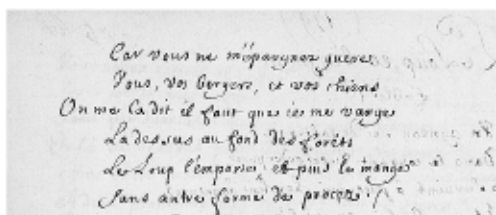 Car vous ne m'epargnez gueres
Vous, vos bergers, et vos chiens
On me l'a dit il faut que ie me vange
La dessus au fond des forets
Le Loup l'emporte, et puis le mange
sans autre forme de procez